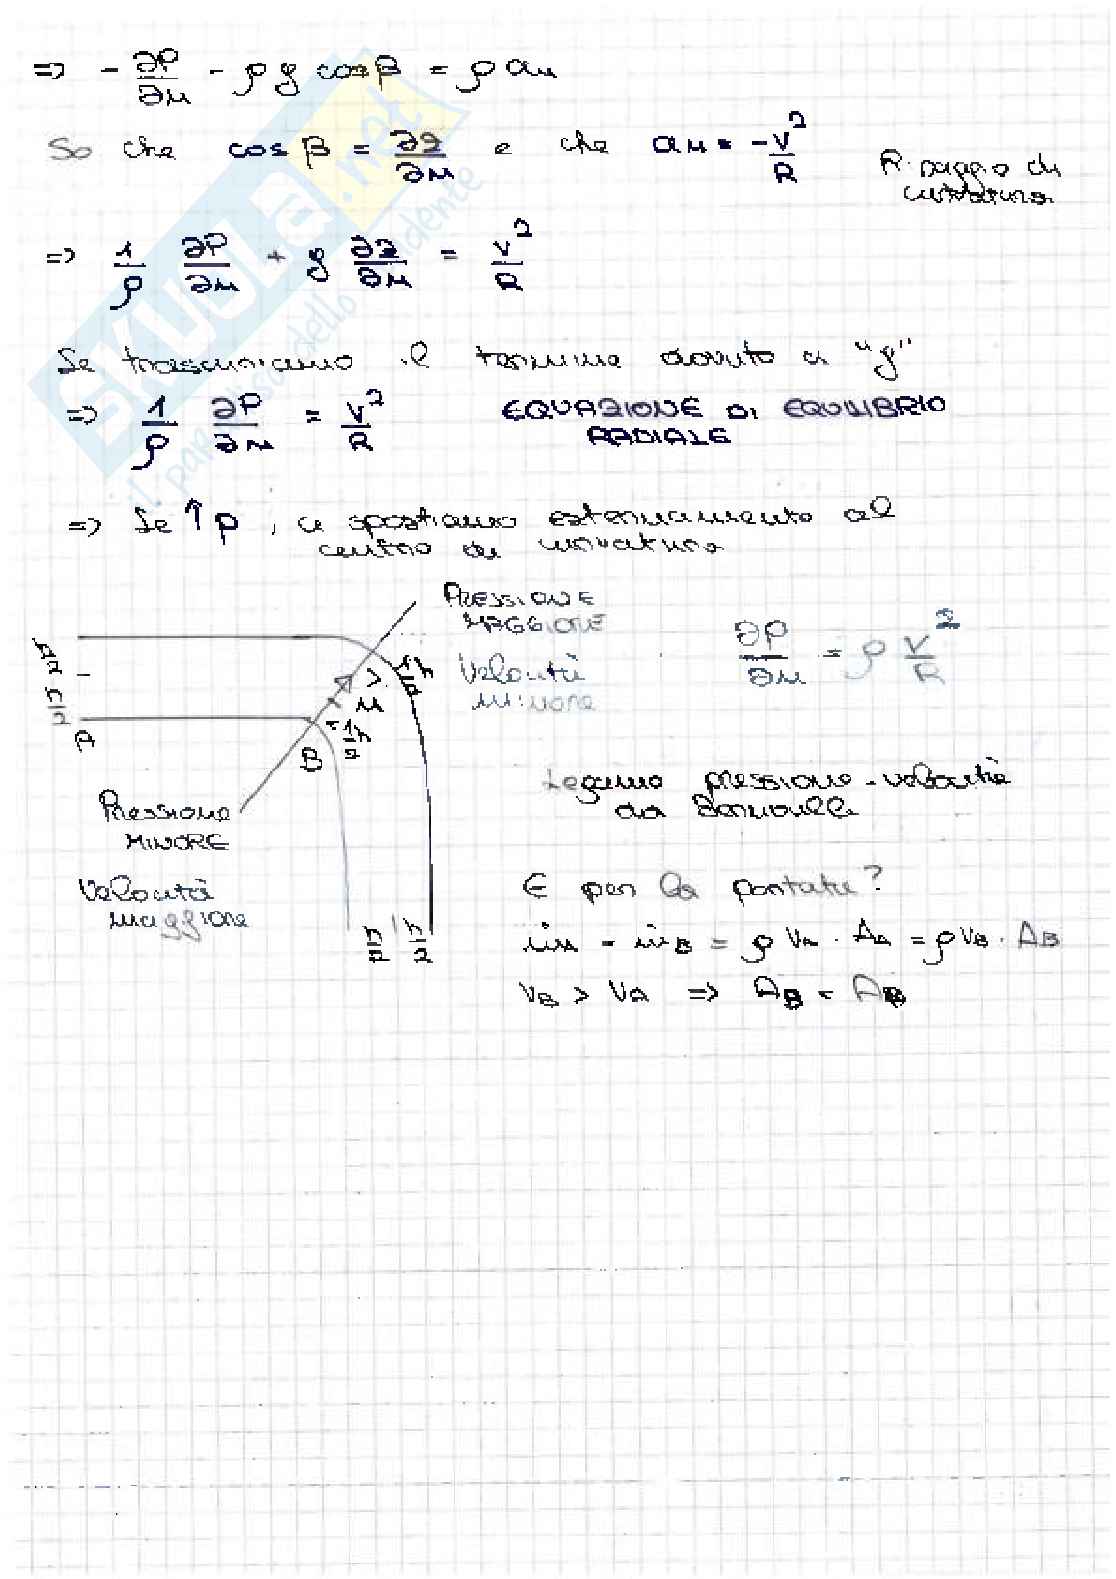 => - ∂P/∂n - ρ g cos β = ρ an
So che cos β = ∂z/∂n e che an = -v²/R
R. raggio di curvatura
=> 1/ρ ∂P/∂n + g ∂z/∂n = v²/R
Se trascuriamo il termine dovuto a "g"
=> 1/ρ ∂P/∂n = v²/R EQUAZIONE DI EQUILIBRIO
RADIALE
=> Se ↑ p, ci spostiamo esternamente al
centro di curvatura
PRESSIONE
MAGGIORE
Velocità
minore
∂P/∂n = ρ v²/R
h/2
h/2
A
B
n
h/2
h/2
Pressione
MINORE
Velocità
maggiore
h/2 h/2
Legame pressione-velocità
da Bernoulli
E per la portata?
ṁA = ṁB = ρ VA · AA = ρ VB · AB
VB > VA =>
SKUOLA.net
il paradiso dello studente